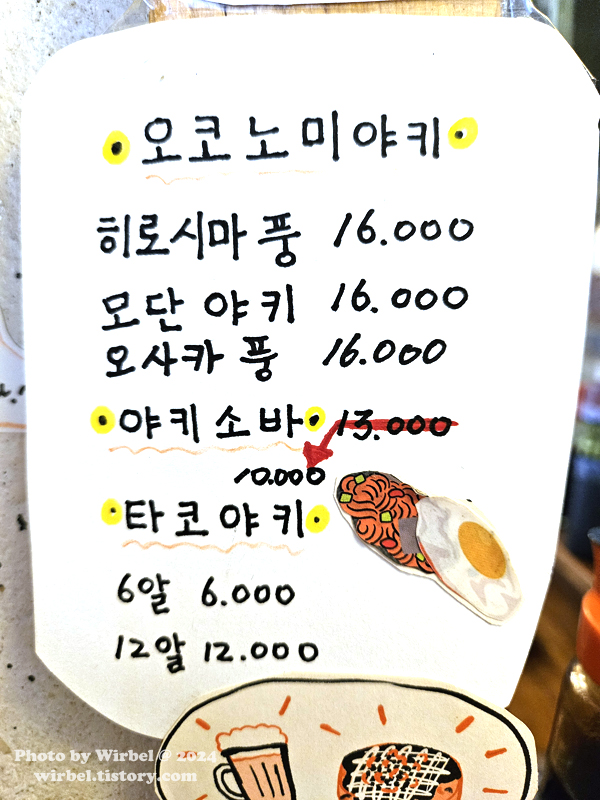 오코노미야키
히로시마풍 16.000
모단야키 16.000
오사카풍 16.000
야키소바 13.000
10.000
타코야키
6알 6.000
12알 12.000
Photo by Wirbel © 2024
wirbel.tistory.com